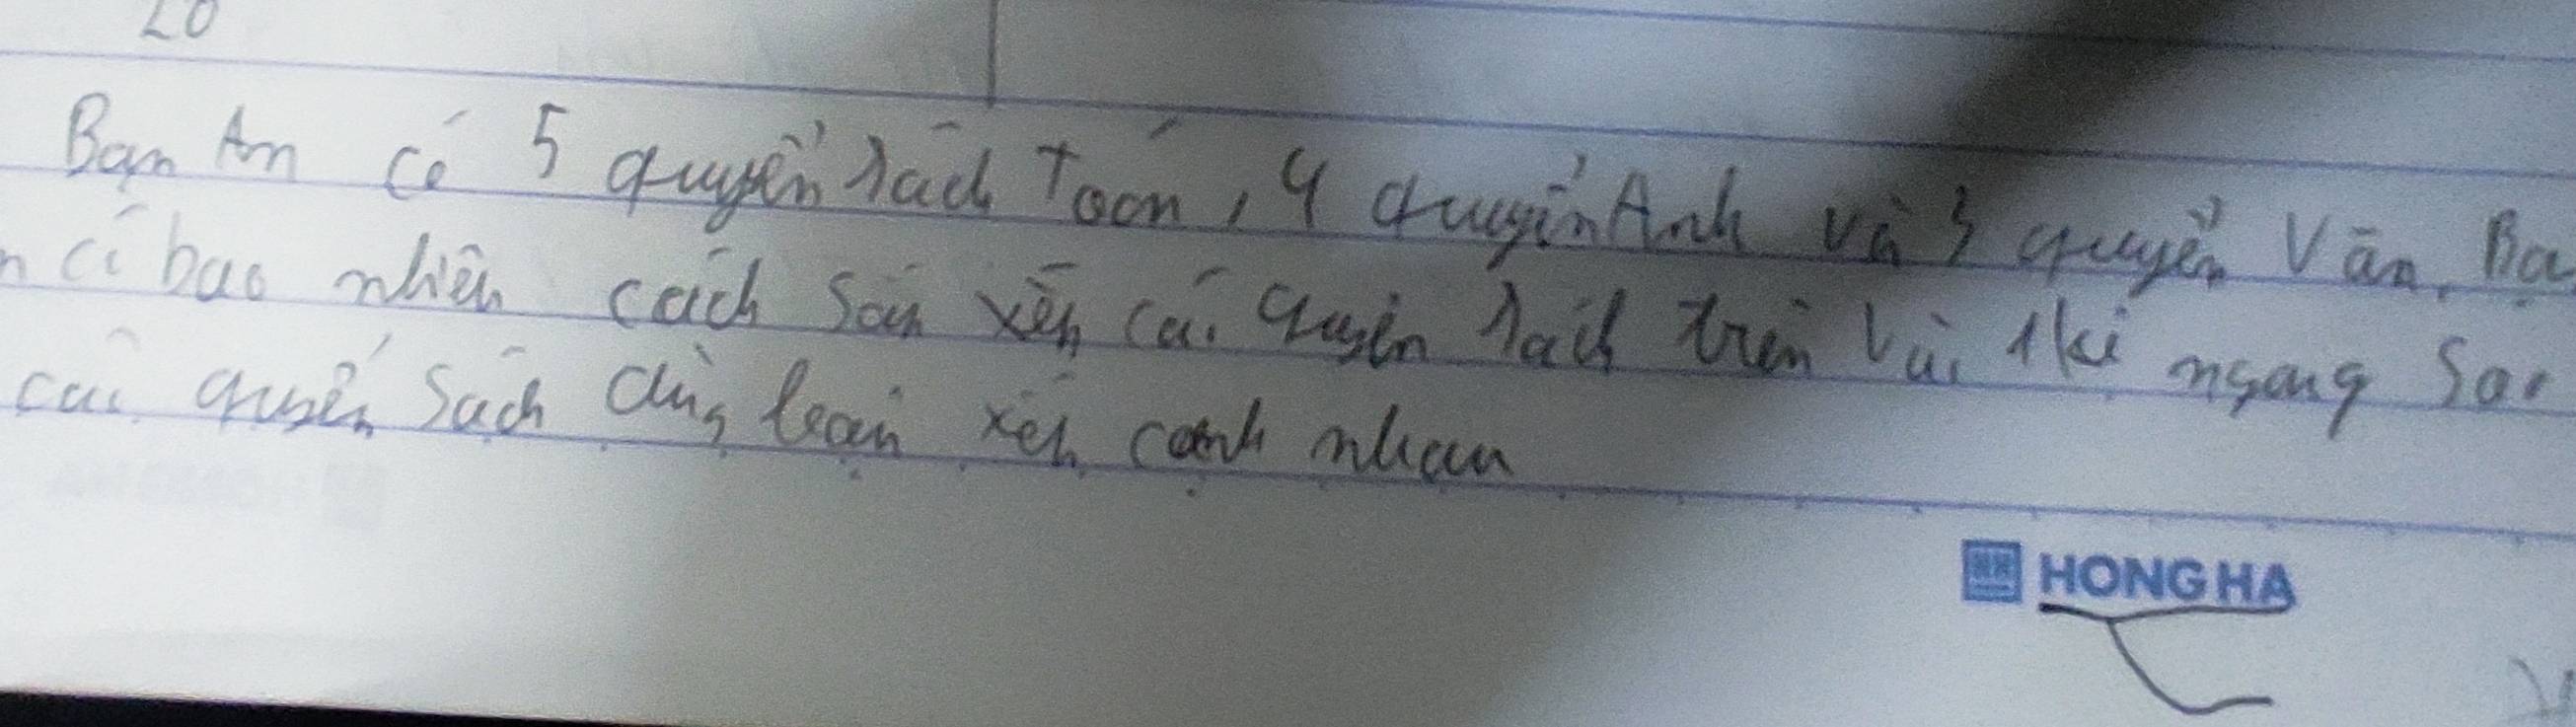 20
Bạn An có 5 quyển sách Toán, 4 quyển Anh và 3 quyển Văn. Bạ
n có bao nhiêu cách sắp xếp các quyển sách trên vài 1 kệ ngang sao
các quyển sách cùng loại xếp cạnh nhau
HONG HA